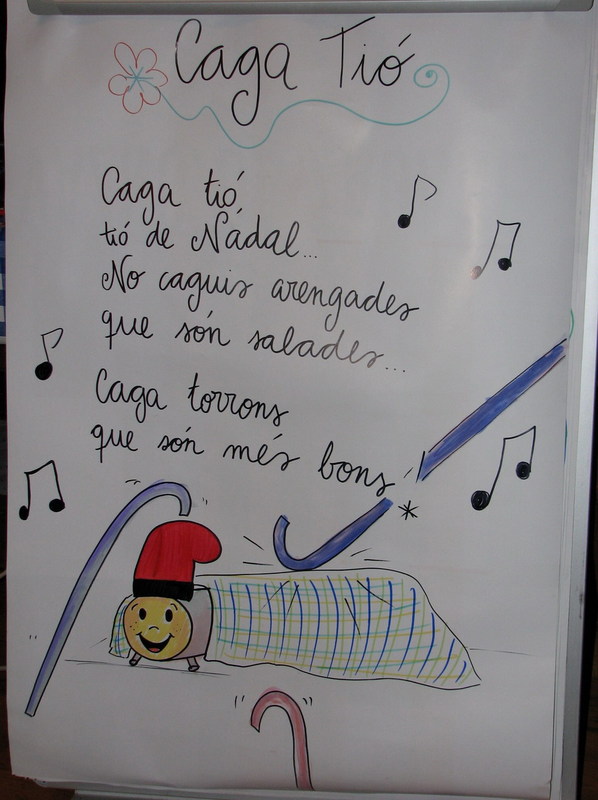 Caga Tió
Caga tió,
tió de Nadal...
No caguis arengades
que són salades...
Caga torrons
que són més bons
*